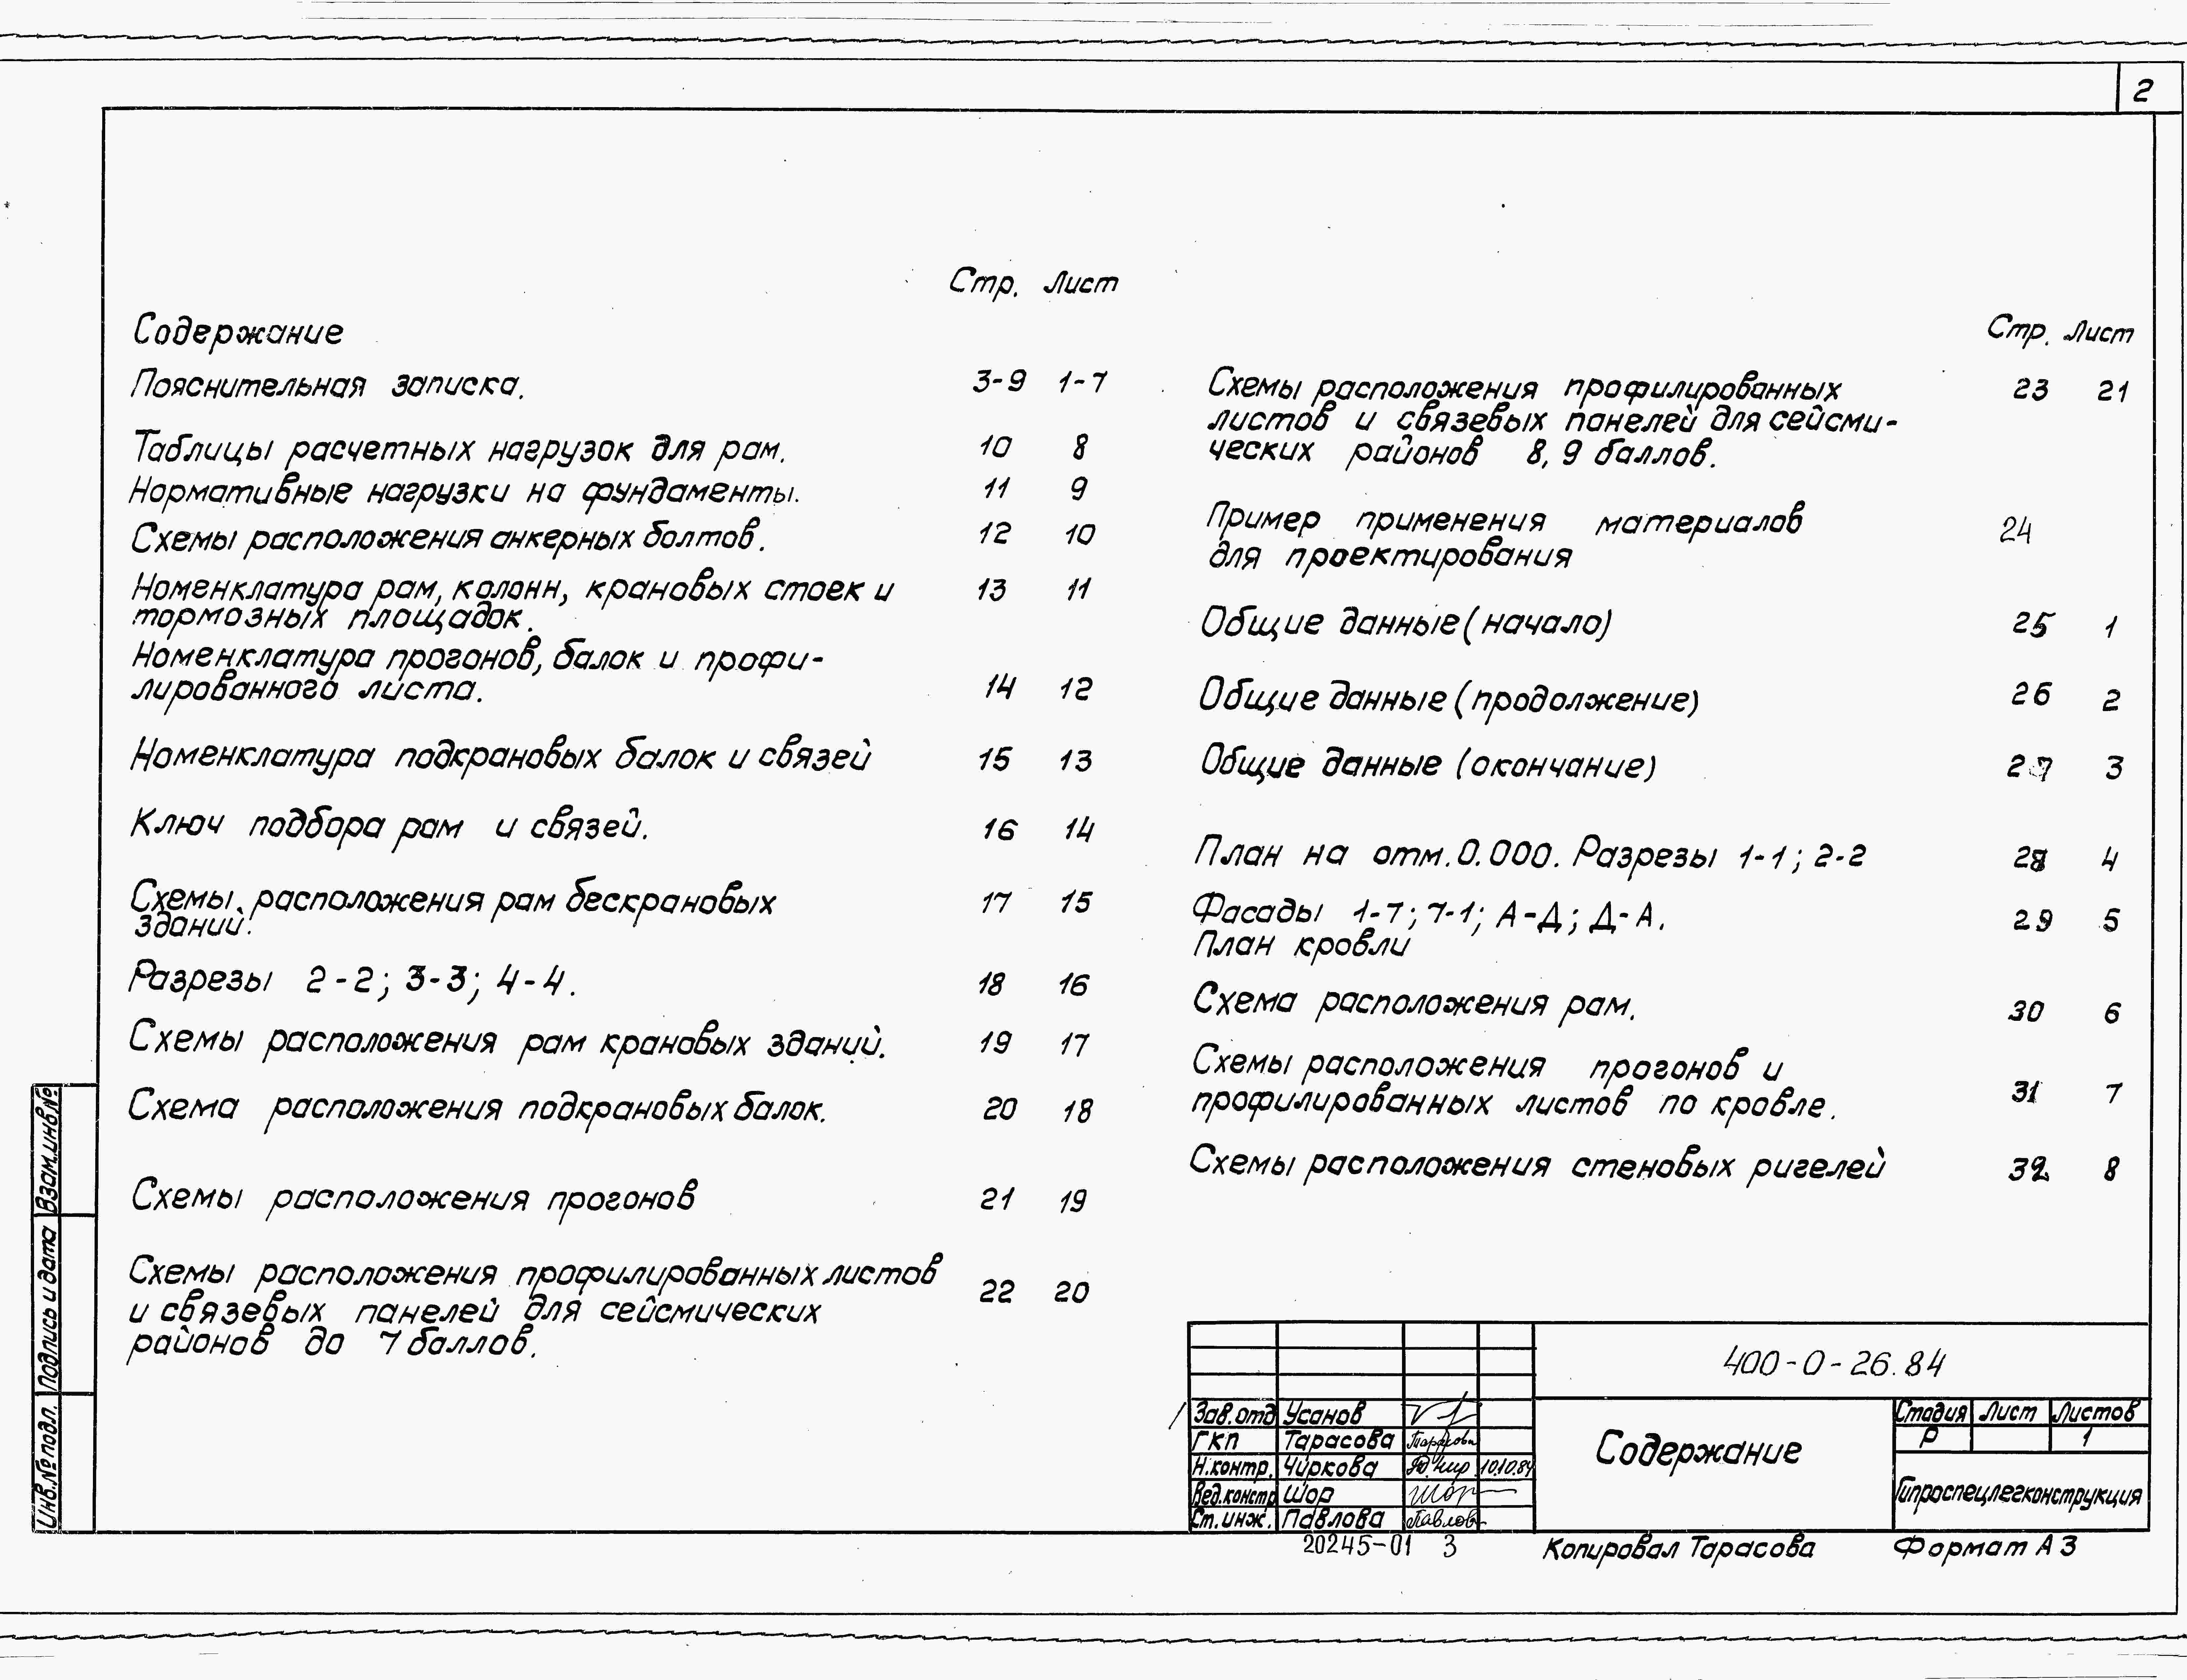 2
Стр. Лист
Содержание
Пояснительная записка. 3-9 1-7
Таблицы расчетных нагрузок для рам. 10 8
Нормативные нагрузки на фундаменты. 11 9
Схемы расположения анкерных болтов. 12 10
Номенклатура рам, колонн, крановых стоек и 13 11
тормозных площадок.
Номенклатура прогонов, балок и профи-
лированного листа. 14 12
Номенклатура подкрановых балок и связей 15 13
Ключ подбора рам и связей. 16 14
Схемы расположения рам бескрановых 17 15
зданий.
Разрезы 2-2; 3-3; 4-4. 18 16
Схемы расположения рам крановых зданий. 19 17
Схема расположения подкрановых балок. 20 18
Схемы расположения прогонов 21 19
Схемы расположения профилированных листов
и связевых панелей для сейсмических 22 20
районов до 7 баллов.
Стр. Лист
Схемы расположения профилированных 23 21
листов и связевых панелей для сейсми-
ческих районов 8, 9 баллов.
Пример применения материалов 24
для проектирования
Общие данные (начало) 25 1
Общие данные (продолжение) 26 2
Общие данные (окончание) 27 3
План на отм. 0.000. Разрезы 1-1; 2-2 28 4
Фасады 1-7; 7-1; А-Д; Д-А. 29 5
План кровли
Схема расположения рам. 30 6
Схемы расположения прогонов и
профилированных листов по кровле. 31 7
Схемы расположения стеновых ригелей 32 8
Взам.инв.№
Подпись и дата
Инв.№ подл.
400-0-26.84
Зав.отд Усанов
ГКП Тарасова Тарасова
Н.контр. Чиркова 10.10.84
Вед.констр Шор Шор
Ст.инж. Павлова Павлов
Содержание
Стадия Лист Листов
Р 1
Гипроспецлегконструкция
20245-01 3
Копировал Тарасова
Формат А3